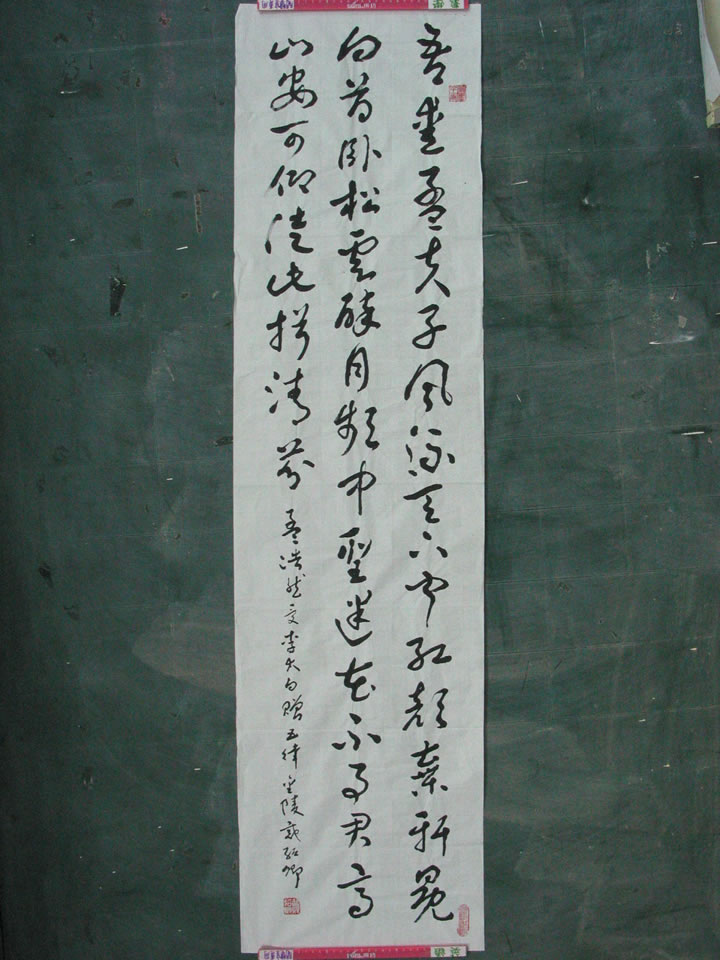 吾愛孟夫子風流天下聞紅顏棄軒冕
白首臥松雲醉月頻中聖迷花不事君高
山安可仰徒此揖清芬 孟浩然 李太白贈五律 金陵